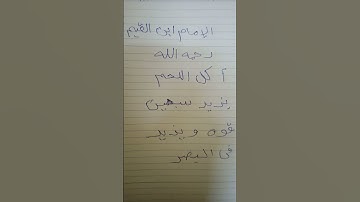 الإمام ابن القيم
رحمه الله
أكل اللحم
يزيد سبعين
قوه ويزيد
في البصر